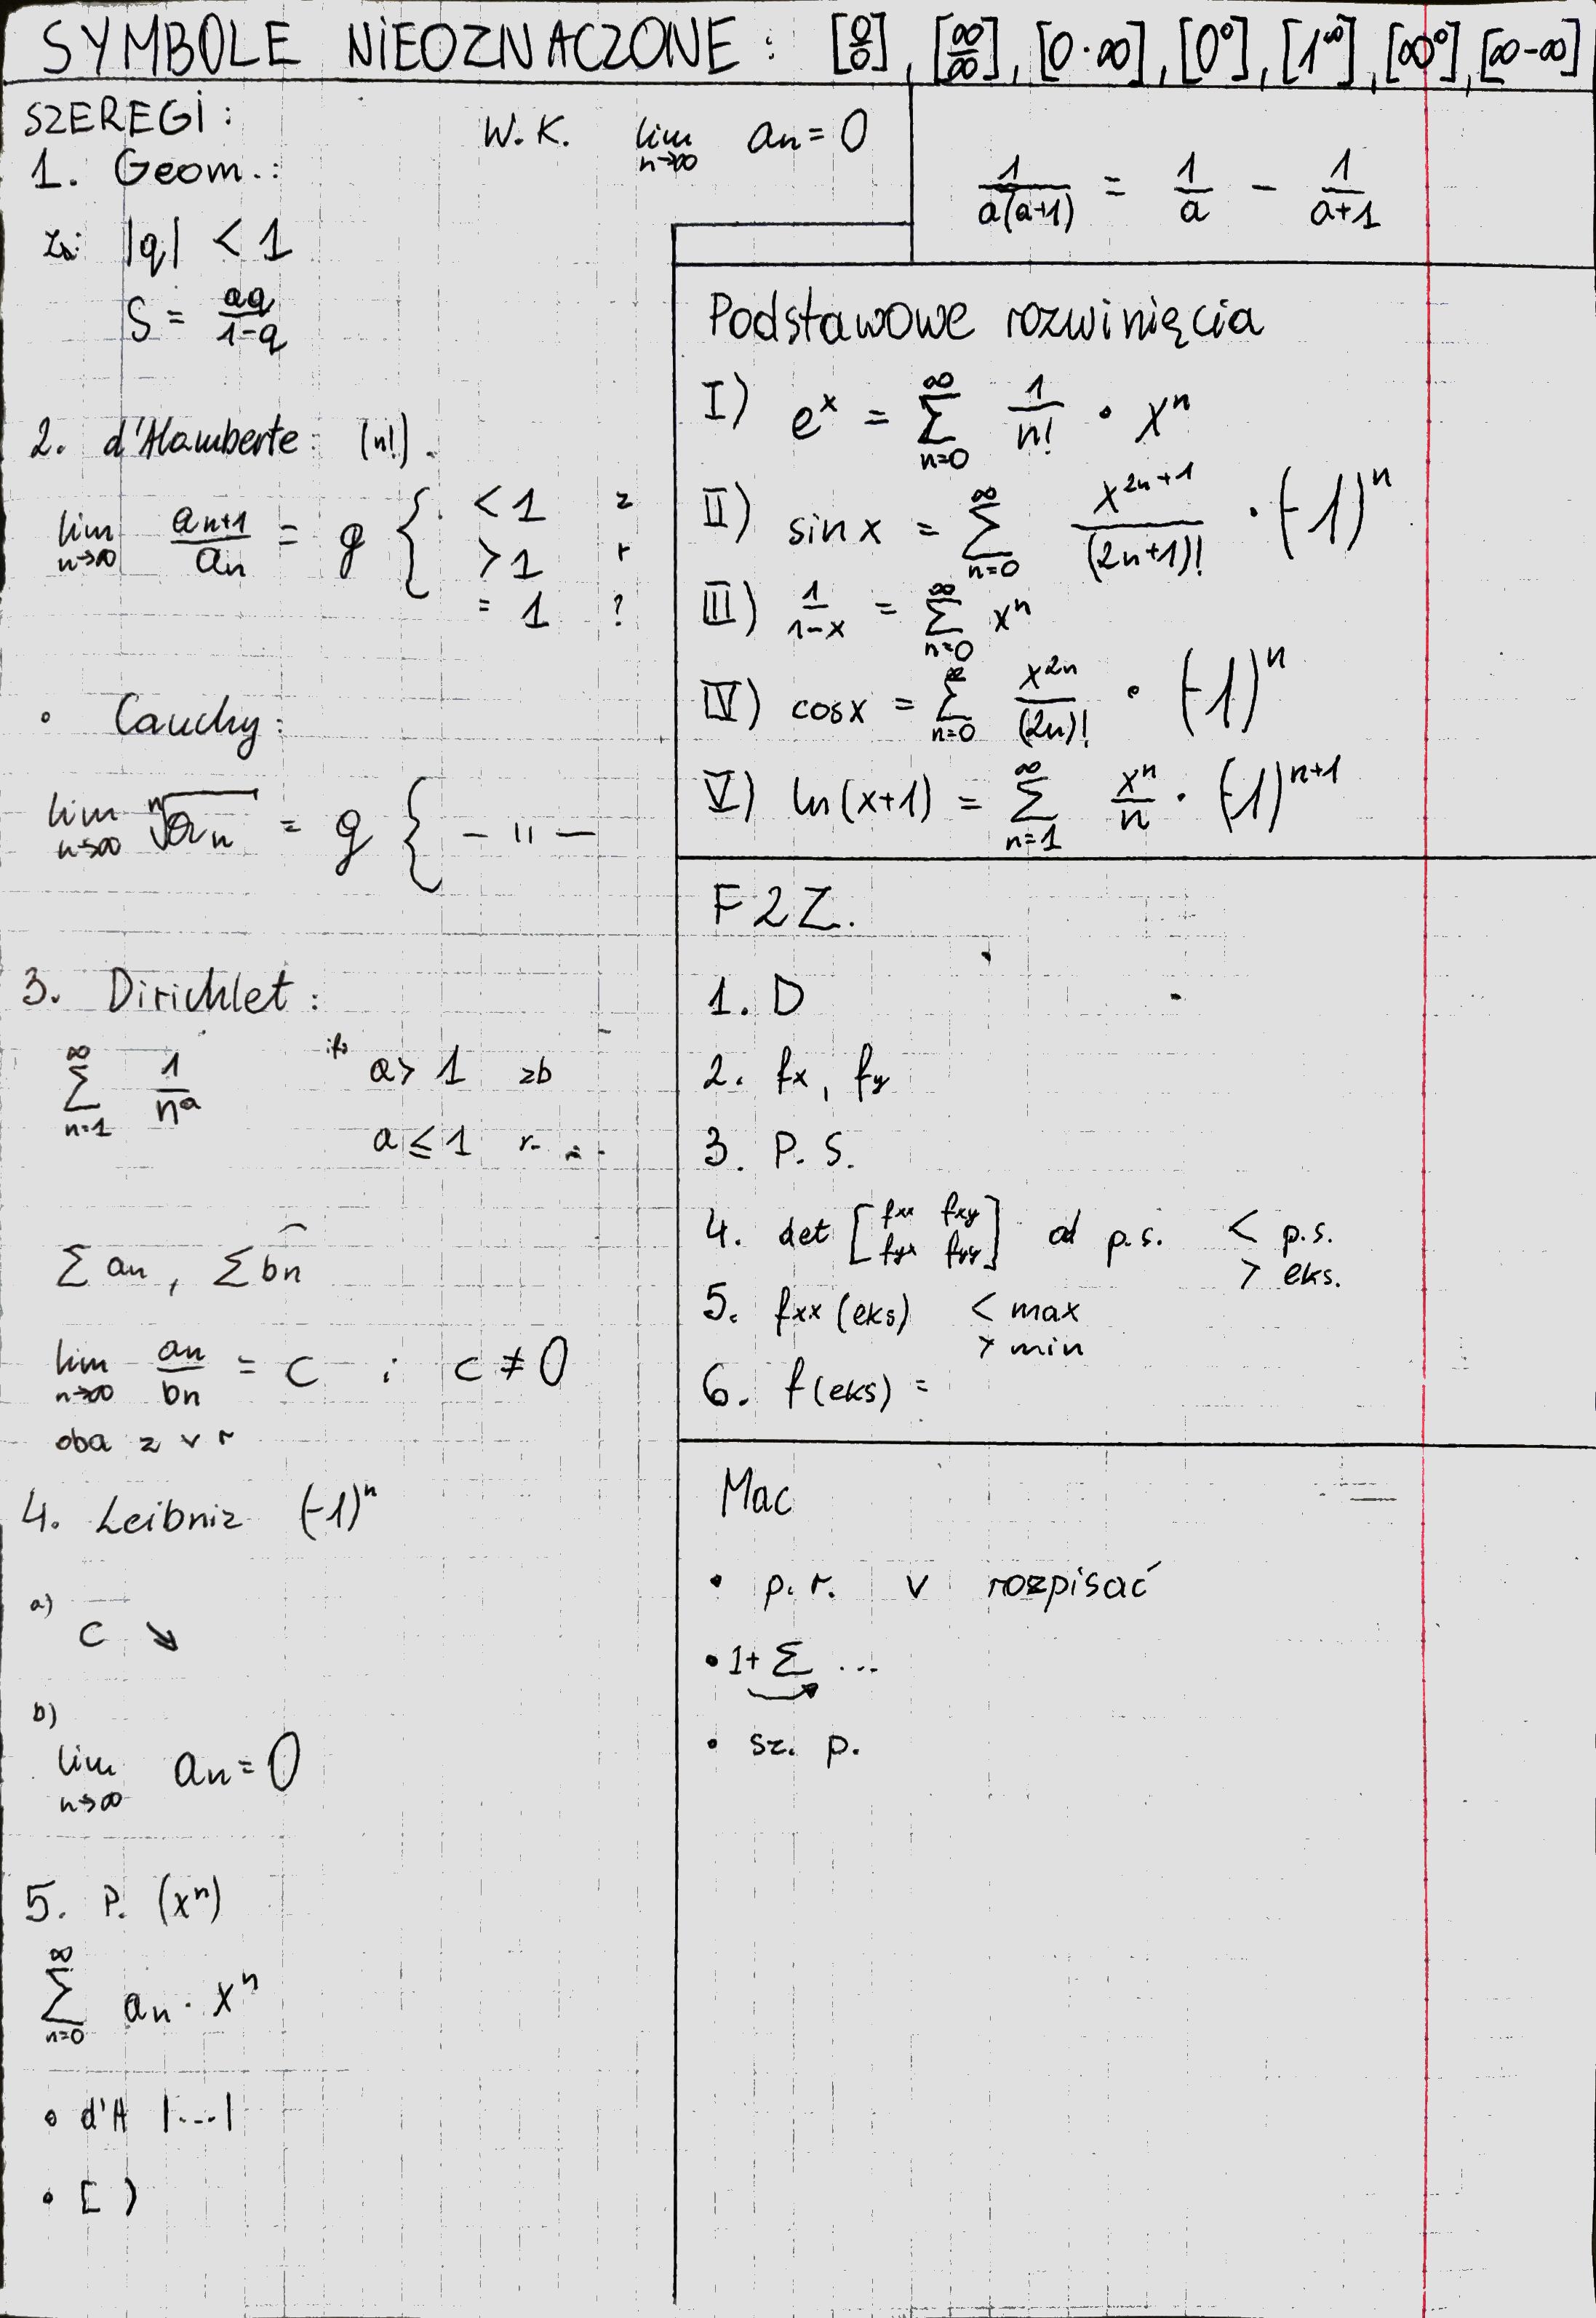 SYMBOLE NIEOZNACZONE : [0/0], [∞/∞], [0·∞], [0⁰], [1^∞], [∞⁰], [∞-∞]
SZEREGI :
W.K. lim n→∞ an = 0
1. Geom.:
zb: |q| < 1
S = aq/1-q
2. d'Alamberte: (n!).
lim n→∞ an+1/an = g { < 1 z
> 1 r
= 1 ?
• Cauchy:
lim n→∞ ⁿ√an = g { — 11 —
3. Dirichlet :
∞ Σ n=1 1/nᵃ a > 1 zb
a ≤ 1 r.
Σ an , Σ bn
lim n→∞ an/bn = C ; C ≠ 0
oba z v r
4. Leibniz (-1)ⁿ
a)
C ↘
b)
lim n→∞ an = 0
5. P. (xⁿ)
∞ Σ n=0 an · xⁿ
• d'A |...|
• [ )
1/a(a+1) = 1/a - 1/a+1
Podstawowe rozwinięcia
I) eˣ = ∞ Σ n=0 1/n! · xⁿ
II) sin x = ∞ Σ n=0 x^2n+1/(2n+1)! · (-1)ⁿ
III) 1/1-x = ∞ Σ n=0 xⁿ
IV) cosx = ∞ Σ n=0 x^2n/(2n)! · (-1)ⁿ
V) ln(x+1) = ∞ Σ n=1 xⁿ/n · (-1)^n+1
F2Z.
1. D
2. fx, fy
3. P. S.
4. det [fxx fxy fyx fyy] od p.s. < p.s.
> eks.
5. fxx (eks) < max
> min
6. f(eks) =
Mac
• p.r. v rozpisać
• 1+ Σ ...
• sz. p.